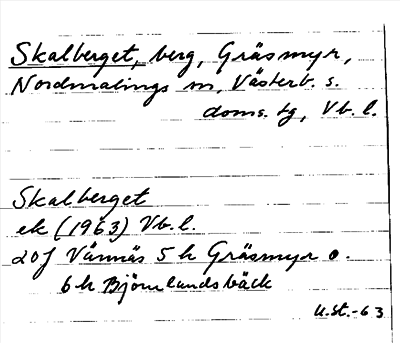 Skalberget, berg, Gräsmyr,
Nordmalings sn, Västerb. s.
doms. tg, Vb. l.
Skalberget
ek (1963) Vb. l.
20J Vännäs 5 h Gräsmyr o.
6 h Björnlandsbäck
U.St.-63